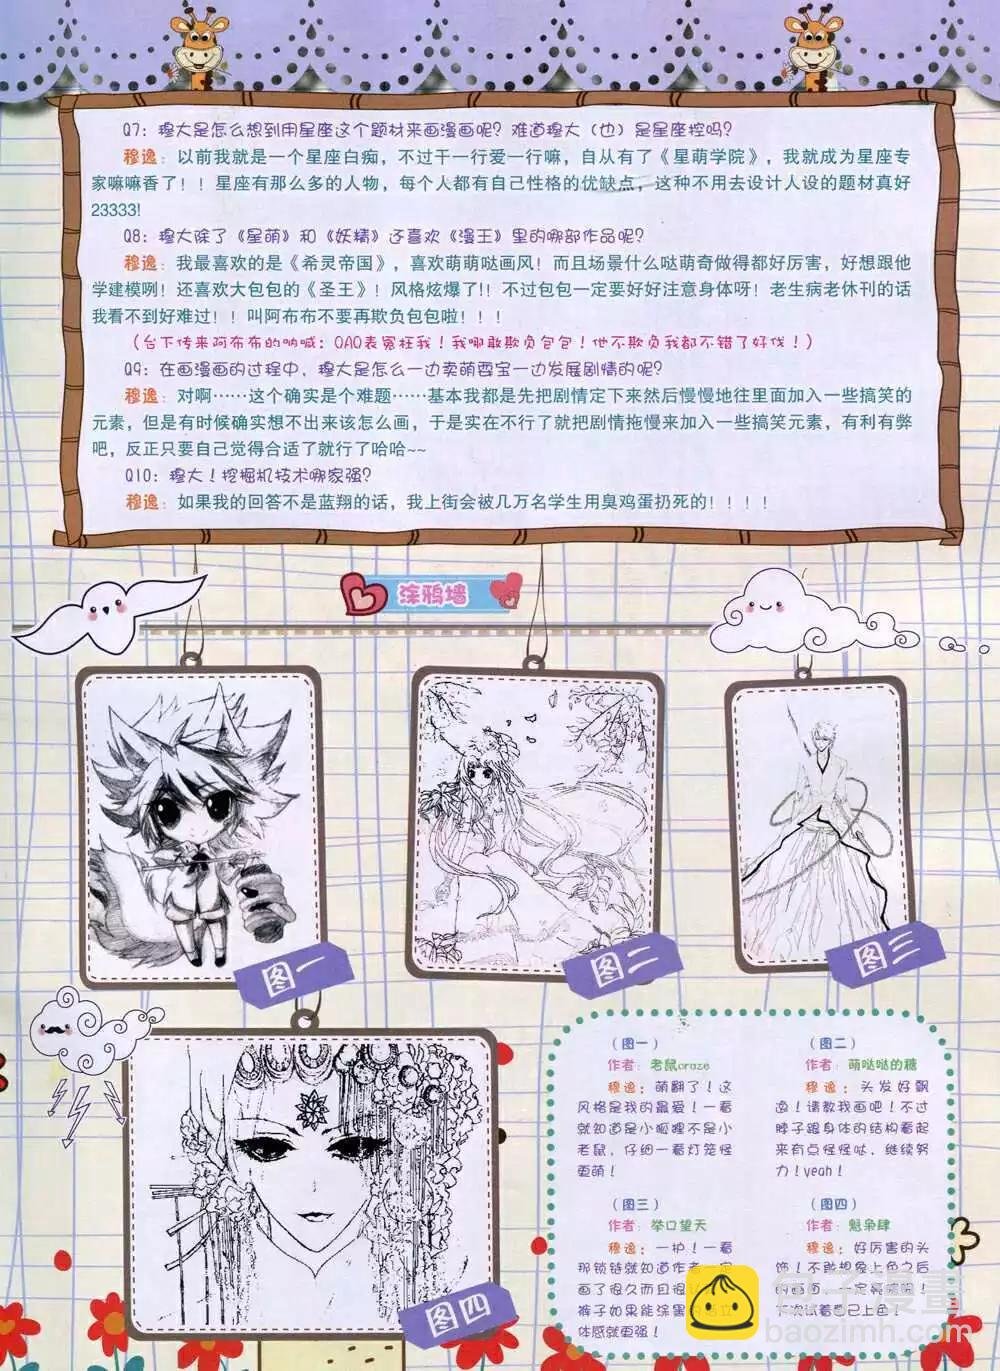 Q7：穆大是怎么想到用星座这个题材来画漫画呢？难道穆大（也）是星座控吗？
穆逸：以前我就是一个星座白痴，不过干一行爱一行嘛，自从有了《星萌学院》，我就成为星座专
家嘛嘛香了！！星座有那么多的人物，每个人都有自己性格的优缺点，这种不用去设计人设的题材真好
23333!
Q8：穆大除了《星萌》和《妖精》还喜欢《漫王》里的哪部作品呢？
穆逸：我最喜欢的是《希灵帝国》，喜欢萌萌哒画风！而且场景什么哒萌奇做得都好厉害，好想跟他
学建模咧！还喜欢大包包的《圣王》！风格炫爆了!！不过包包一定要好好注意身体呀！老生病老休刊的话
我看不到好难过！！叫阿布布不要再欺负包包啦！！！
（台下传来阿布布的呐喊：QAQ表冤枉我！我哪敢欺负包包！他不欺负我都不错了好伐！）
Q9：在画漫画的过程中，穆大是怎么一边卖萌耍宝一边发展剧情的呢？
穆逸：对啊……这个确实是个难题……基本我都是先把剧情定下来然后慢慢地往里面加入一些搞笑的
元素，但是有时候确实想不出来该怎么画，于是实在不行了就把剧情拖慢来加入一些搞笑元素，有利有弊
吧，反正只要自己觉得合适了就行了哈哈~~
Q10：穆大！挖掘机技术哪家强？
穆逸：如果我的回答不是蓝翔的话，我上街会被几万名学生用臭鸡蛋扔死的！！！！
涂鸦墙
图一
图二
图三
图四
（图一）
作者：老鼠craze
穆逸：萌翻了！这
风格是我的最爱！一看
就知道是小狐狸不是小
老鼠，仔细一看灯笼怪
更萌！
（图二）
作者：萌哒哒的糖
穆逸：头发好飘
逸！请教我画吧！不过
脖子跟身体的结构看起
来有点怪怪哒，继续努
力！yeah！
（图三）
作者：举口望天
穆逸：一护！一看
那锁链就知道作者一定
画了很久而且很
裤子如果能涂黑的话立
体感就更强！
（图四）
作者：魁枭肆
穆逸：好厉害的头
饰！不敢想象上色之后
的画面，一定亮瞎啊！
下次试着自己上色！
包子漫畫
baozimh.com